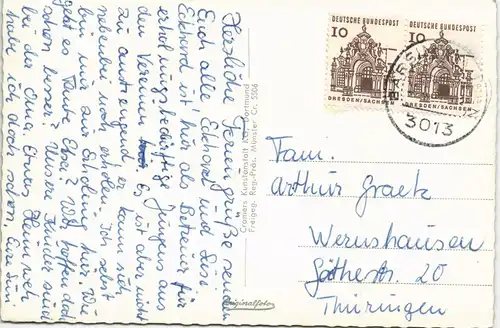 Herzliche Feriengrüße senden
Euch allen Eckhard und Susi.
Eckhard ist hier als Betreuer für
erholungsbedürftige Jungens aus
den Vereinen. Es ist aber nicht
zu anstrengend, er kann sich
nebenbei noch erholen. Ich selbst
bin nur zur Erholung hier. Wie
geht es Tante Elsa? Wir hoffen doch
schon besser? Unsere Kinder sind
bei der Oma. Etwas Heimweh
habe ich doch schon
Cramers Kunstanstalt KG., Dortmund
Freigeg. Reg.-Präs. Münster Nr. 5506
Originalfoto
DEUTSCHE BUNDESPOST
10
DRESDEN/SACHSEN
DEUTSCHE BUNDESPOST
10
DRESDEN/SACHSEN
3013
Fam.
Arthur Graetz
Wernshausen
Göthestr. 20
Thüringen